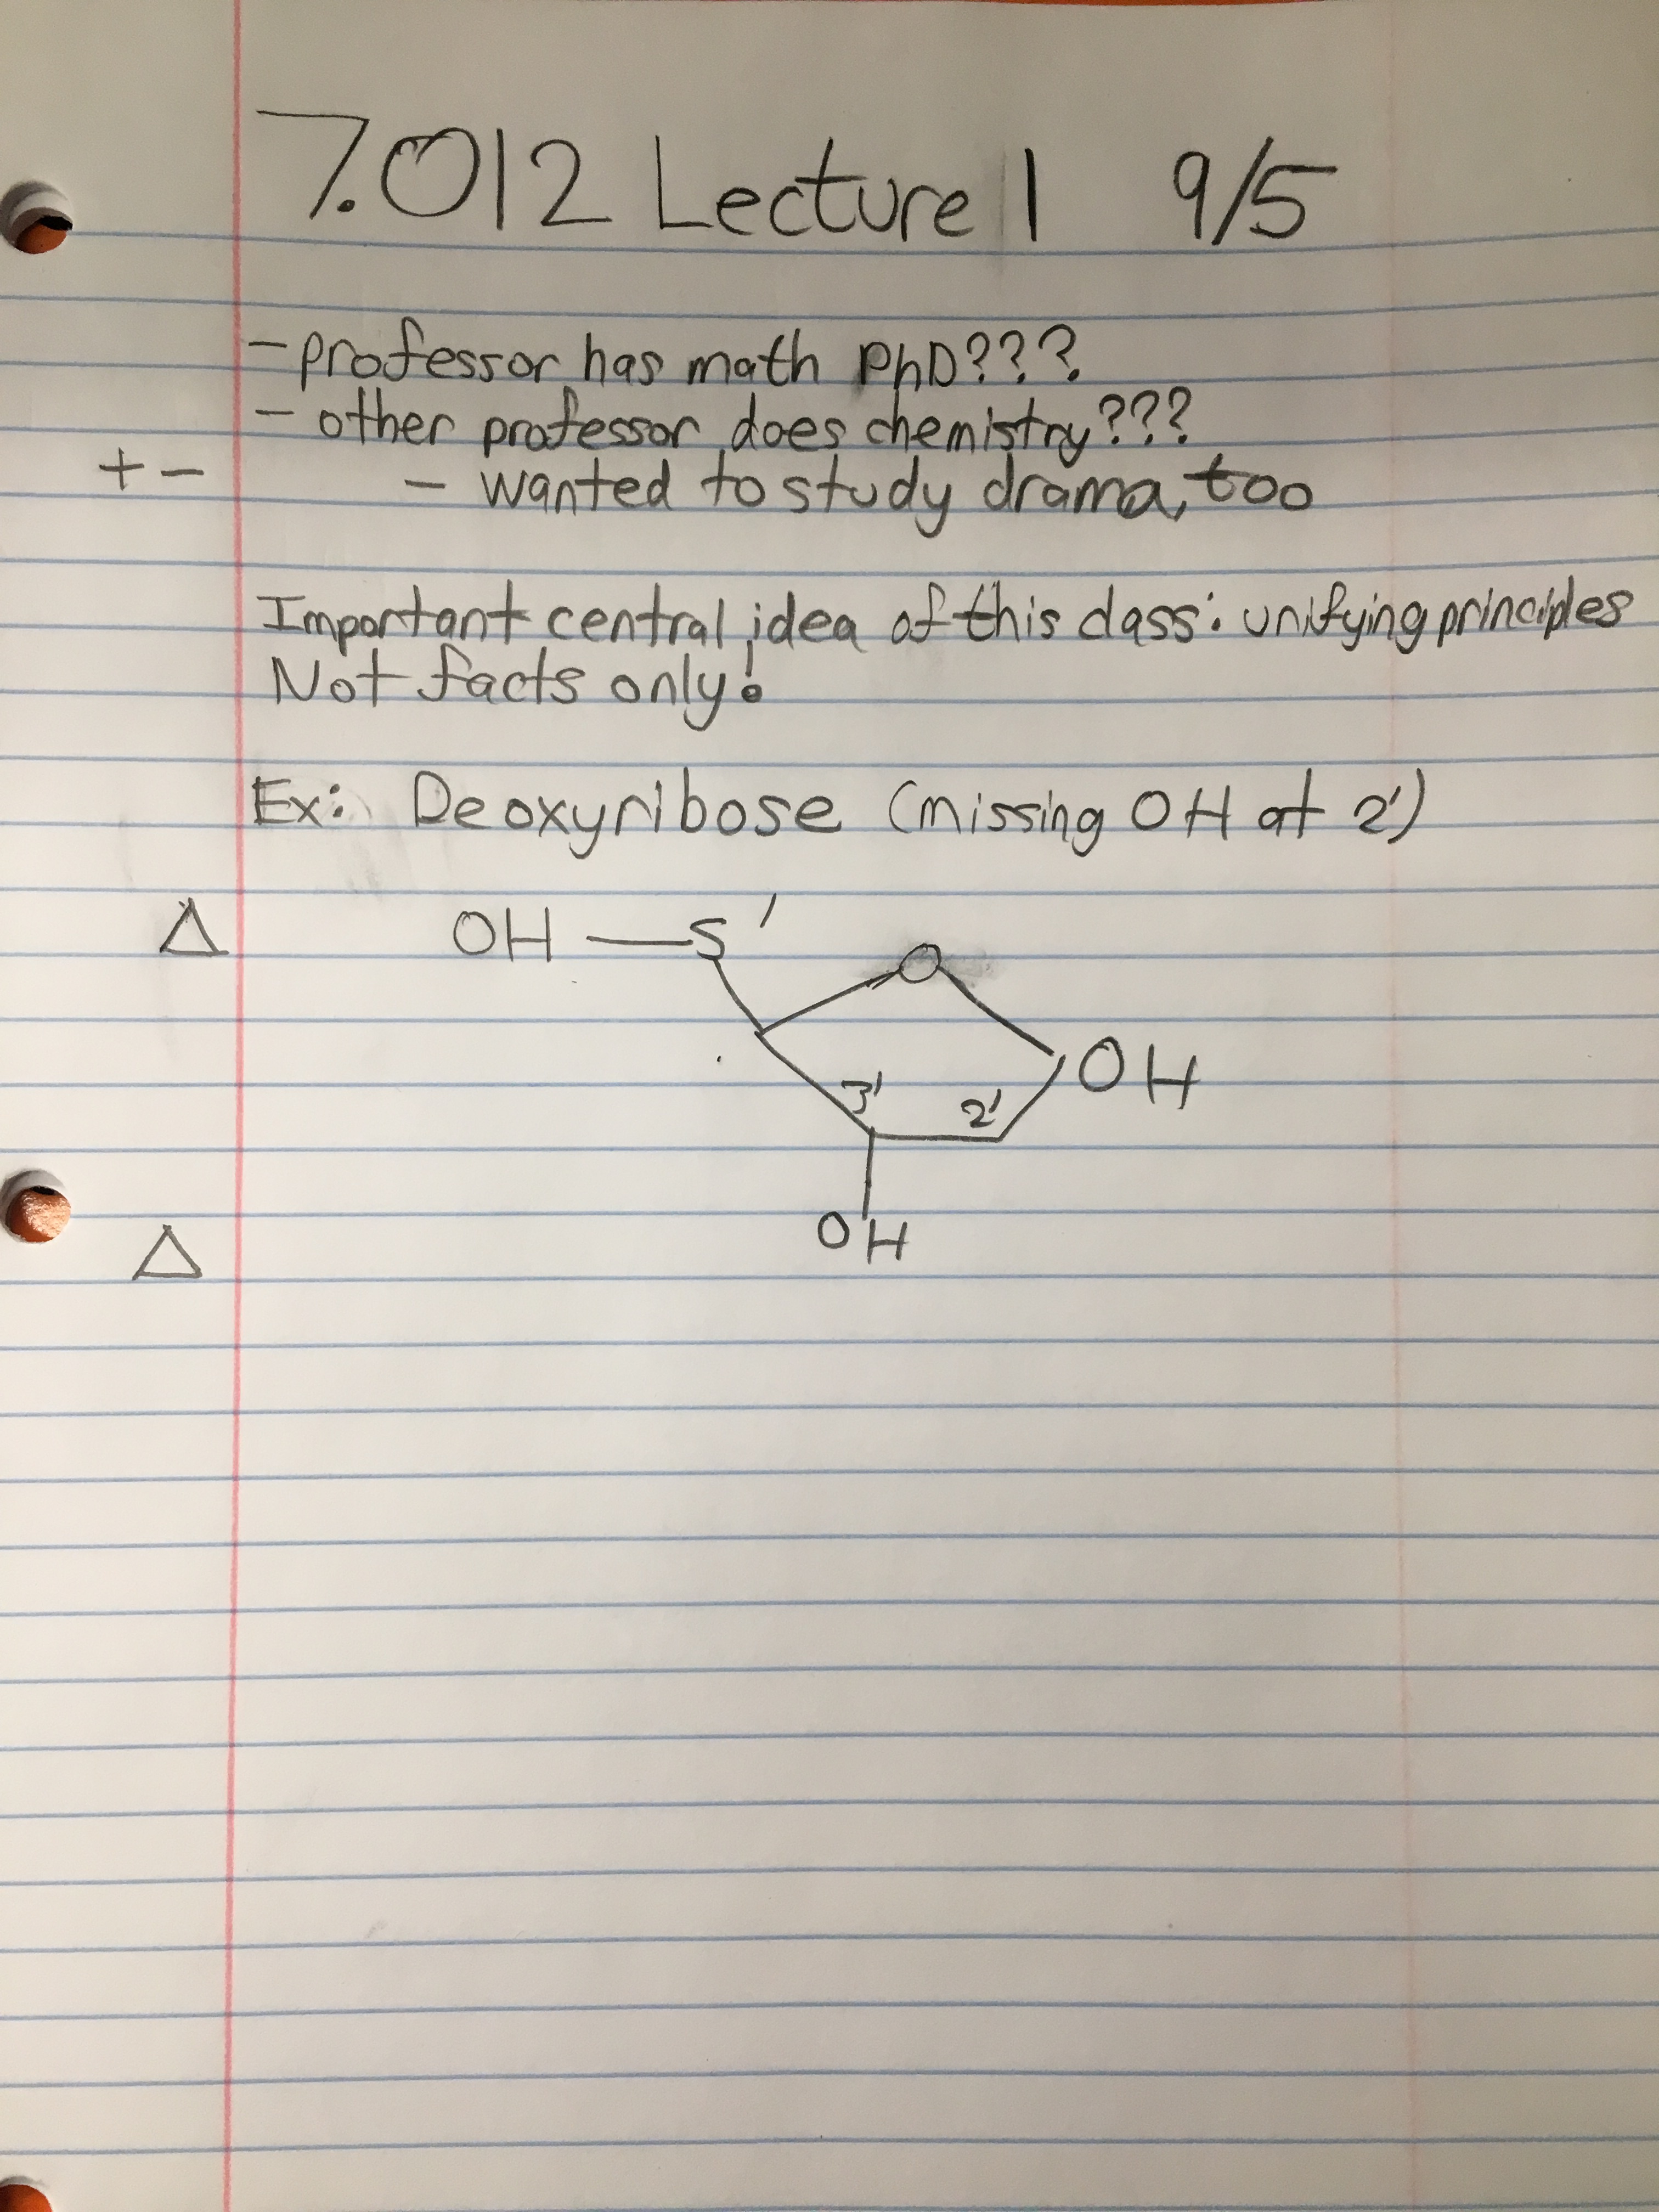 7.012 Lecture 1 9/5
- professor has math PhD???
- other professor does chemistry???
+ - - wanted to study drama, too
Important central idea of this class: unifying principles
Not facts only!
Ex: Deoxyribose (missing OH at 2')
Δ OH 5' O
3' 2' OH
Δ OH